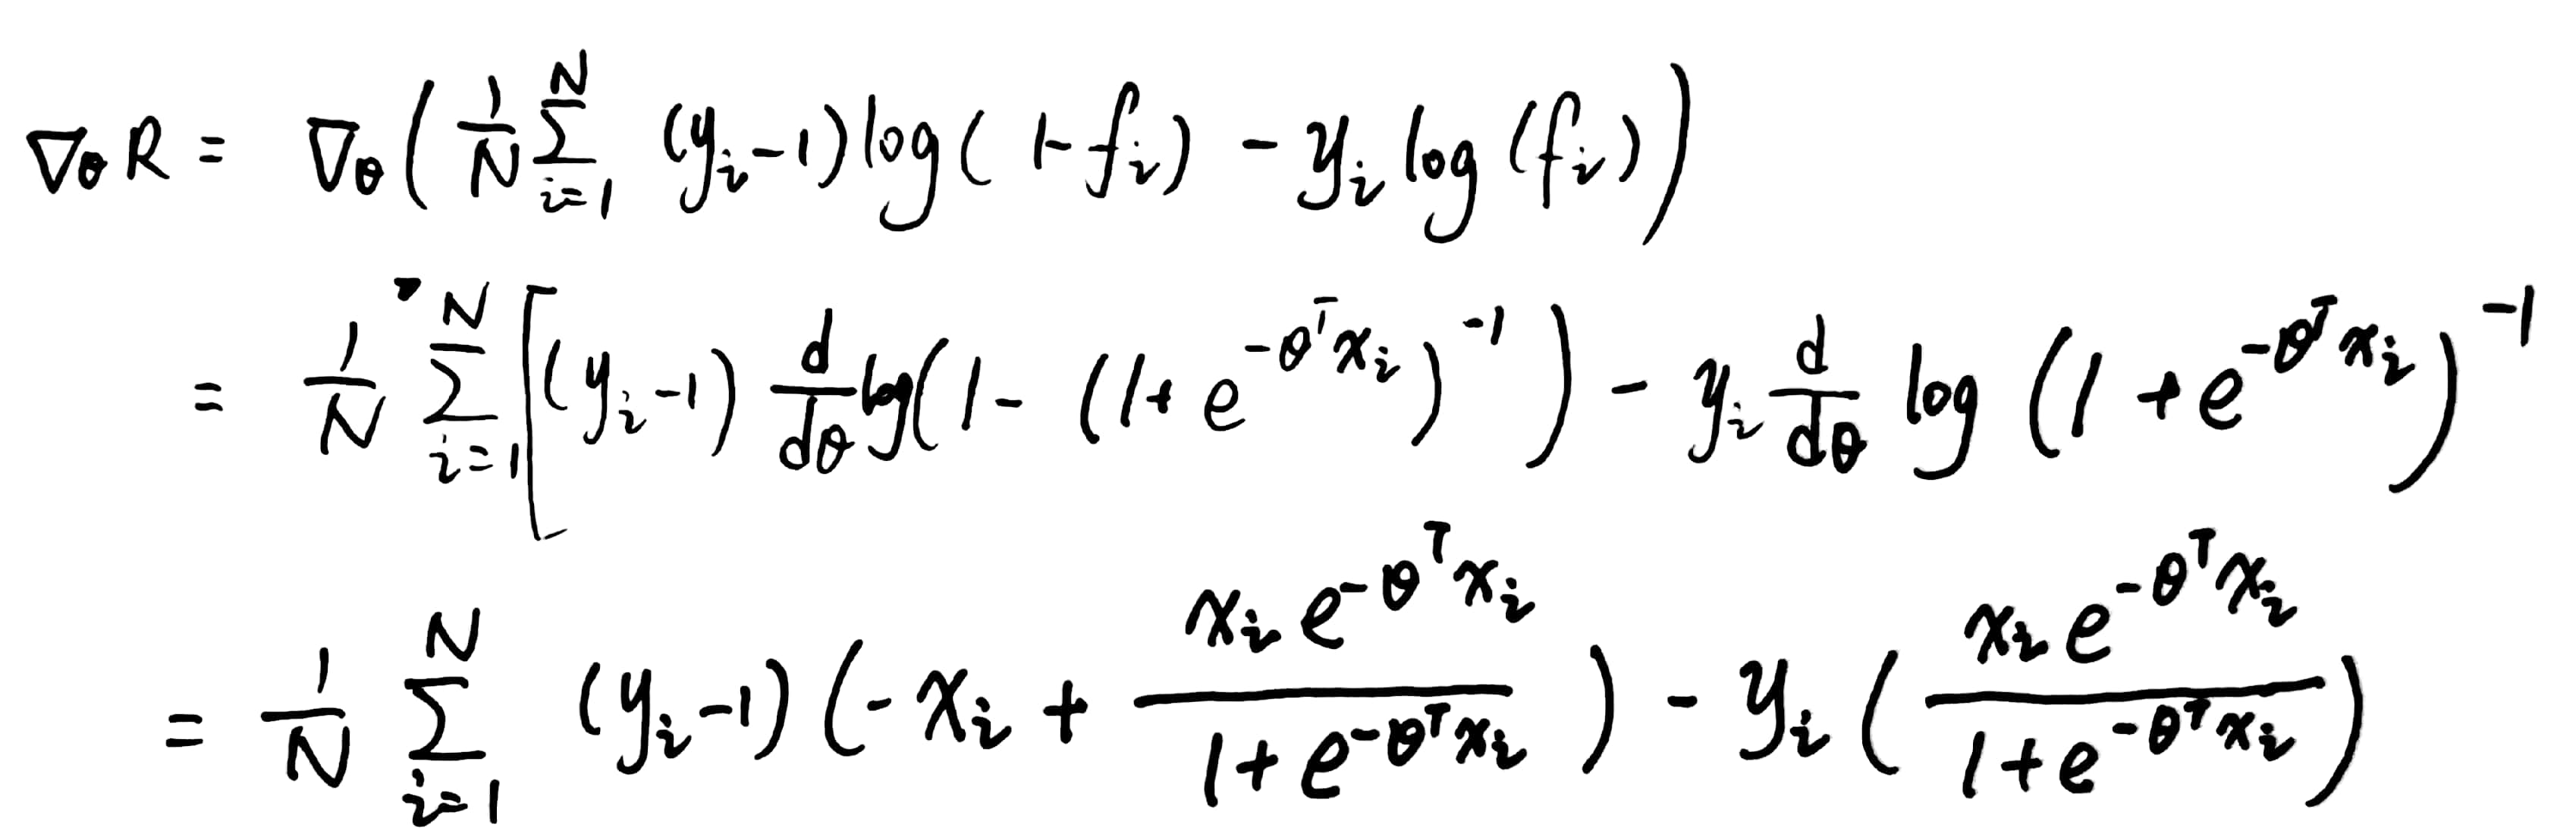 ∇_θ R = ∇_θ ( \frac{1}{N} \sum_{i=1}^{N} (y_i - 1) log( 1 - f_i ) - y_i log (f_i) )
= \frac{1}{N} \sum_{i=1}^{N} [ (y_i - 1) \frac{d}{dθ} log( 1 - (1 + e^{-θ^T x_i})^{-1} ) - y_i \frac{d}{dθ} log (1 + e^{-θ^T x_i})^{-1}
= \frac{1}{N} \sum_{i=1}^{N} (y_i - 1) ( - x_i + \frac{x_i e^{-θ^T x_i}}{1 + e^{-θ^T x_i}} ) - y_i ( \frac{x_i e^{-θ^T x_i}}{1 + e^{-θ^T x_i}} )